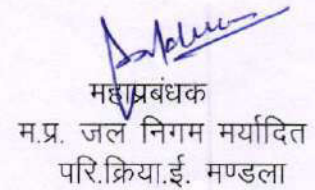 महाप्रबंधक
म.प्र. जल निगम मर्यादित
परि.क्रिया.ई. मण्डला